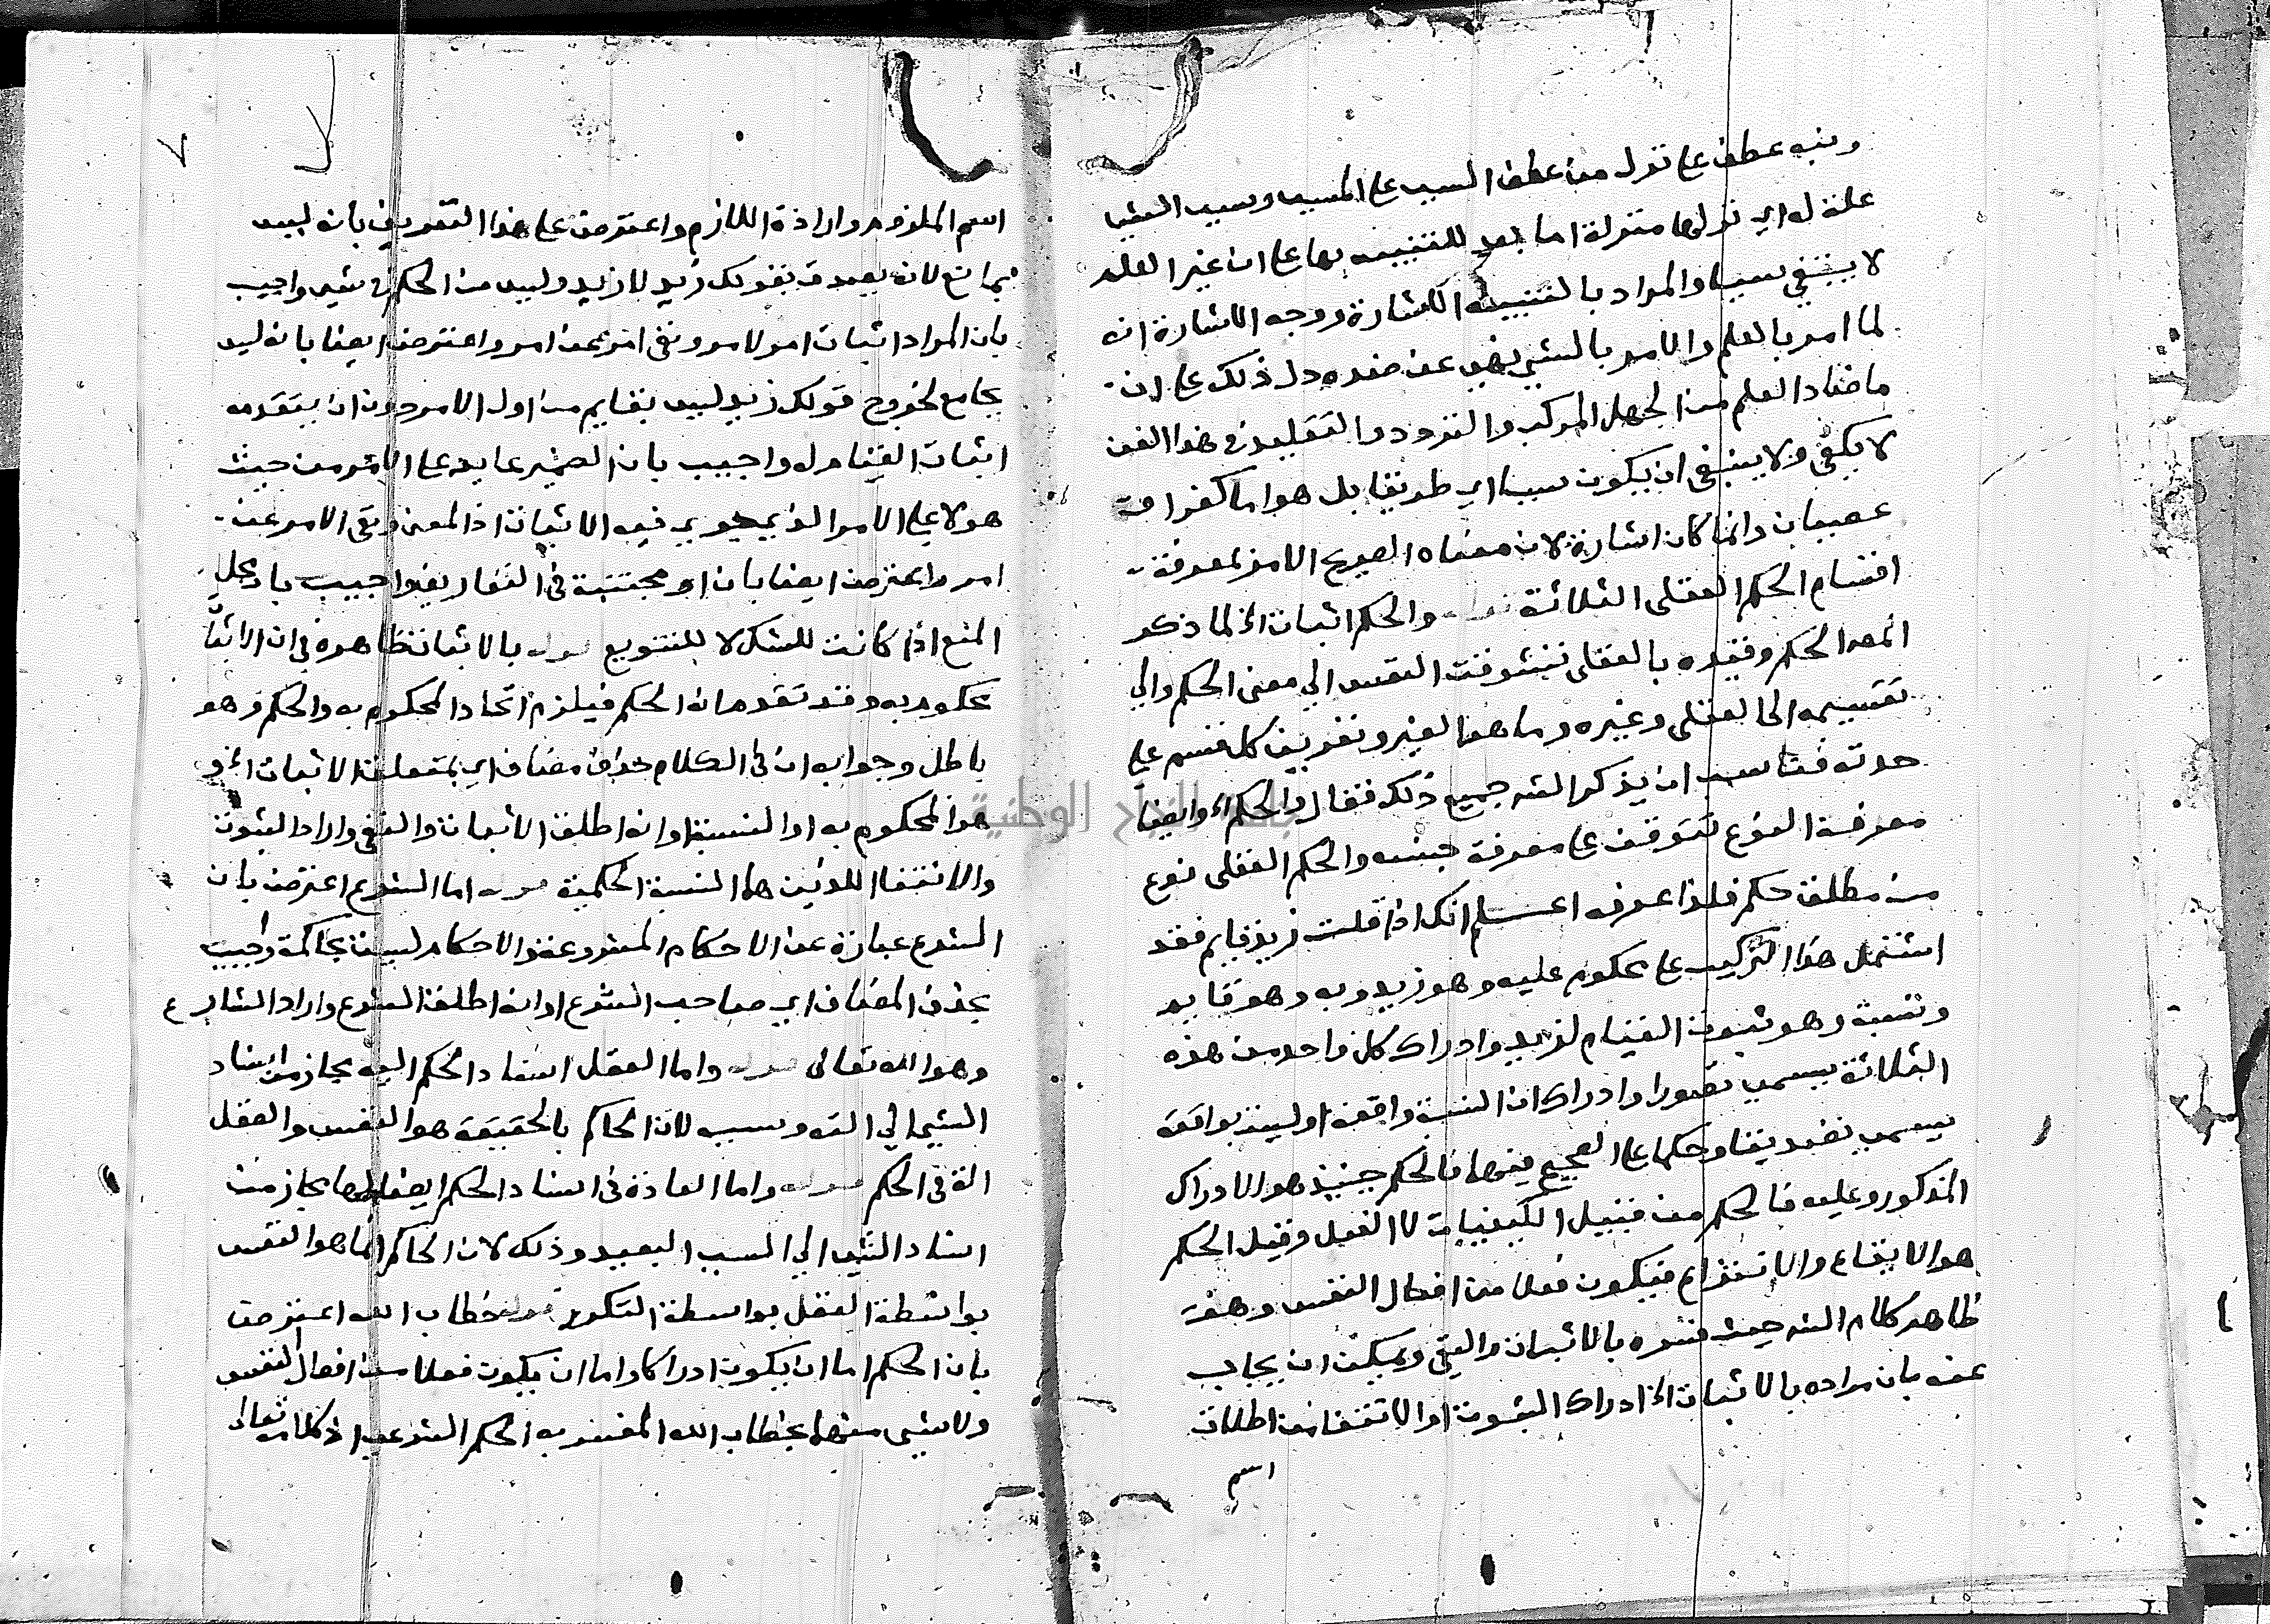 ونبه عطف على نزل من عطف السبب على المسبب وسبب الشيا
علة له اي نزلها منزلة اما بعد للتنبيه بها على ان غير العلم
لا ينبغي سببا والمراد بالتنبيه الاشارة ووجه الاشارة انه
لما امر بالعلم والامر بالشيي نهي عن ضده دل ذلك على ان
ما ضاد العلم من الجهل المركب والتردد والتقليد في هذا الفن
لا يكفي ولا ينبغي ان يكون سببا اي طريقا بل هو اما كفر او
عصيان وانما كان اشارة لان معناه الصريح الامر بمعرفة
اقسام الحكم العقلى الثلاثة قوله والحكم اثبات الخ لما ذكر
المص الحكم وقيده بالعقلى تشوفت النفس الي معنى الحكم والي
تقسيمه الى العقلى وغيره وما هو الغير وتعريف كل قسم على
حدته فناسب ان يذكر الشه جميع ذلك فقال والحكم الخ وايضا
معرفة النوع تتوقف على معرفة جنسه والحكم العقلى نوع
من مطلق حكم فلذا عرفه اعلم انك اذا قلت زيد قايم فقد
اشتمل هذا التركيب على محكوم عليه وهو زيد وبه وهو قايم
ونسبة وهو ثبوت القيام لزيد وادراك كل واحد من هذه
الثلاثة يسمى تصورا وادراك ان النسبة واقعة او ليست بواقعة
يسمى تصديقا وحكما على الصحيح فيهما فالحكم حينيذ هو الادراك
المذكور وعليه فالحكم من قبيل الكيفيات لا الفعل وقيل الحكم
هو الايقاع والانتزاع فيكون فعلا من افعال النفس وهو
ظاهر كلام الشه حيث فسره بالاثبات والنفي ويمكن ان يجاب
عنه بان مراده بالاثبات الخ ادراك الثبوت او الانتفا من اطلاق
اسم
٧
اسم الملزوم وارادة اللازم واعترض على هذا التعريف بانه ليس
بمانع لانه يصدق بقولك زيد لا زيد وليس من الحكم في شيي واجيب
بان المراد اثبات امر لامر ونفى امر عن امر واعترض ايضا بانه ليس
بجامع لخروج قولك زيد ليس بقايم من اول الامر دون ان يتقدمه
اثبات القيام له واجيب بان الضمير عايد على الامر من حيث
هو لا على الامر الذي جرى فيه الاثبات اذ المعنى ونفى الامر عن
امر واعترض ايضا بان او مجتنبة في التعاريف واجيب بان محل
المنع اذا كانت للشك لا للتنويع قوله بالاثبات ظاهره في ان الاثبا
محكوم به وقد تقدم انه الحكم فيلزم اتحاد المحكوم به والحكم وهو
باطل وجوابه ان في الكلام حذف مضاف اي بمتعلق الاثبات الخ و
هو المحكوم به او النسبة او انه اطلق الاثبات والنفي واراد الثبوت
والانتفا اللذين هما النسبة الحكمية قوله اما الشرع اعترض بان
الشرع عبارة عن الاحكام المشروعة والاحكام ليست بحاكمة واجيب
بحذف المضاف اي صاحب الشرع او انه اطلق الشرع واراد الشارع
وهو الله تعالى قوله واما العقل اسناد الحكم اليه مجاز من اسناد
الشي الي الته وسببه لان الحاكم بالحقيقة هو النفس والعقل
الة في الحكم قوله واما العادة في اسناد الحكم ايضا لها مجاز من
اسناد الشي الي السبب البعيد وذلك لان الحاكم انما هو النفس
بواسطة العقل بواسطة التكرر قوله خطاب الله اعترض
بان الحكم اما ان يكون ادراكا واما ان يكون فعلا من افعال النفس
ولا شيي منهما بخطاب الله المفسر به الحكم الشرعي اذ كلامه تعالى
جامعة النجاح الوطنية